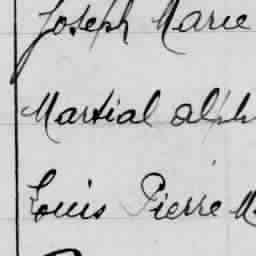 Joseph Marie
Martial alph
Louis Pierre M